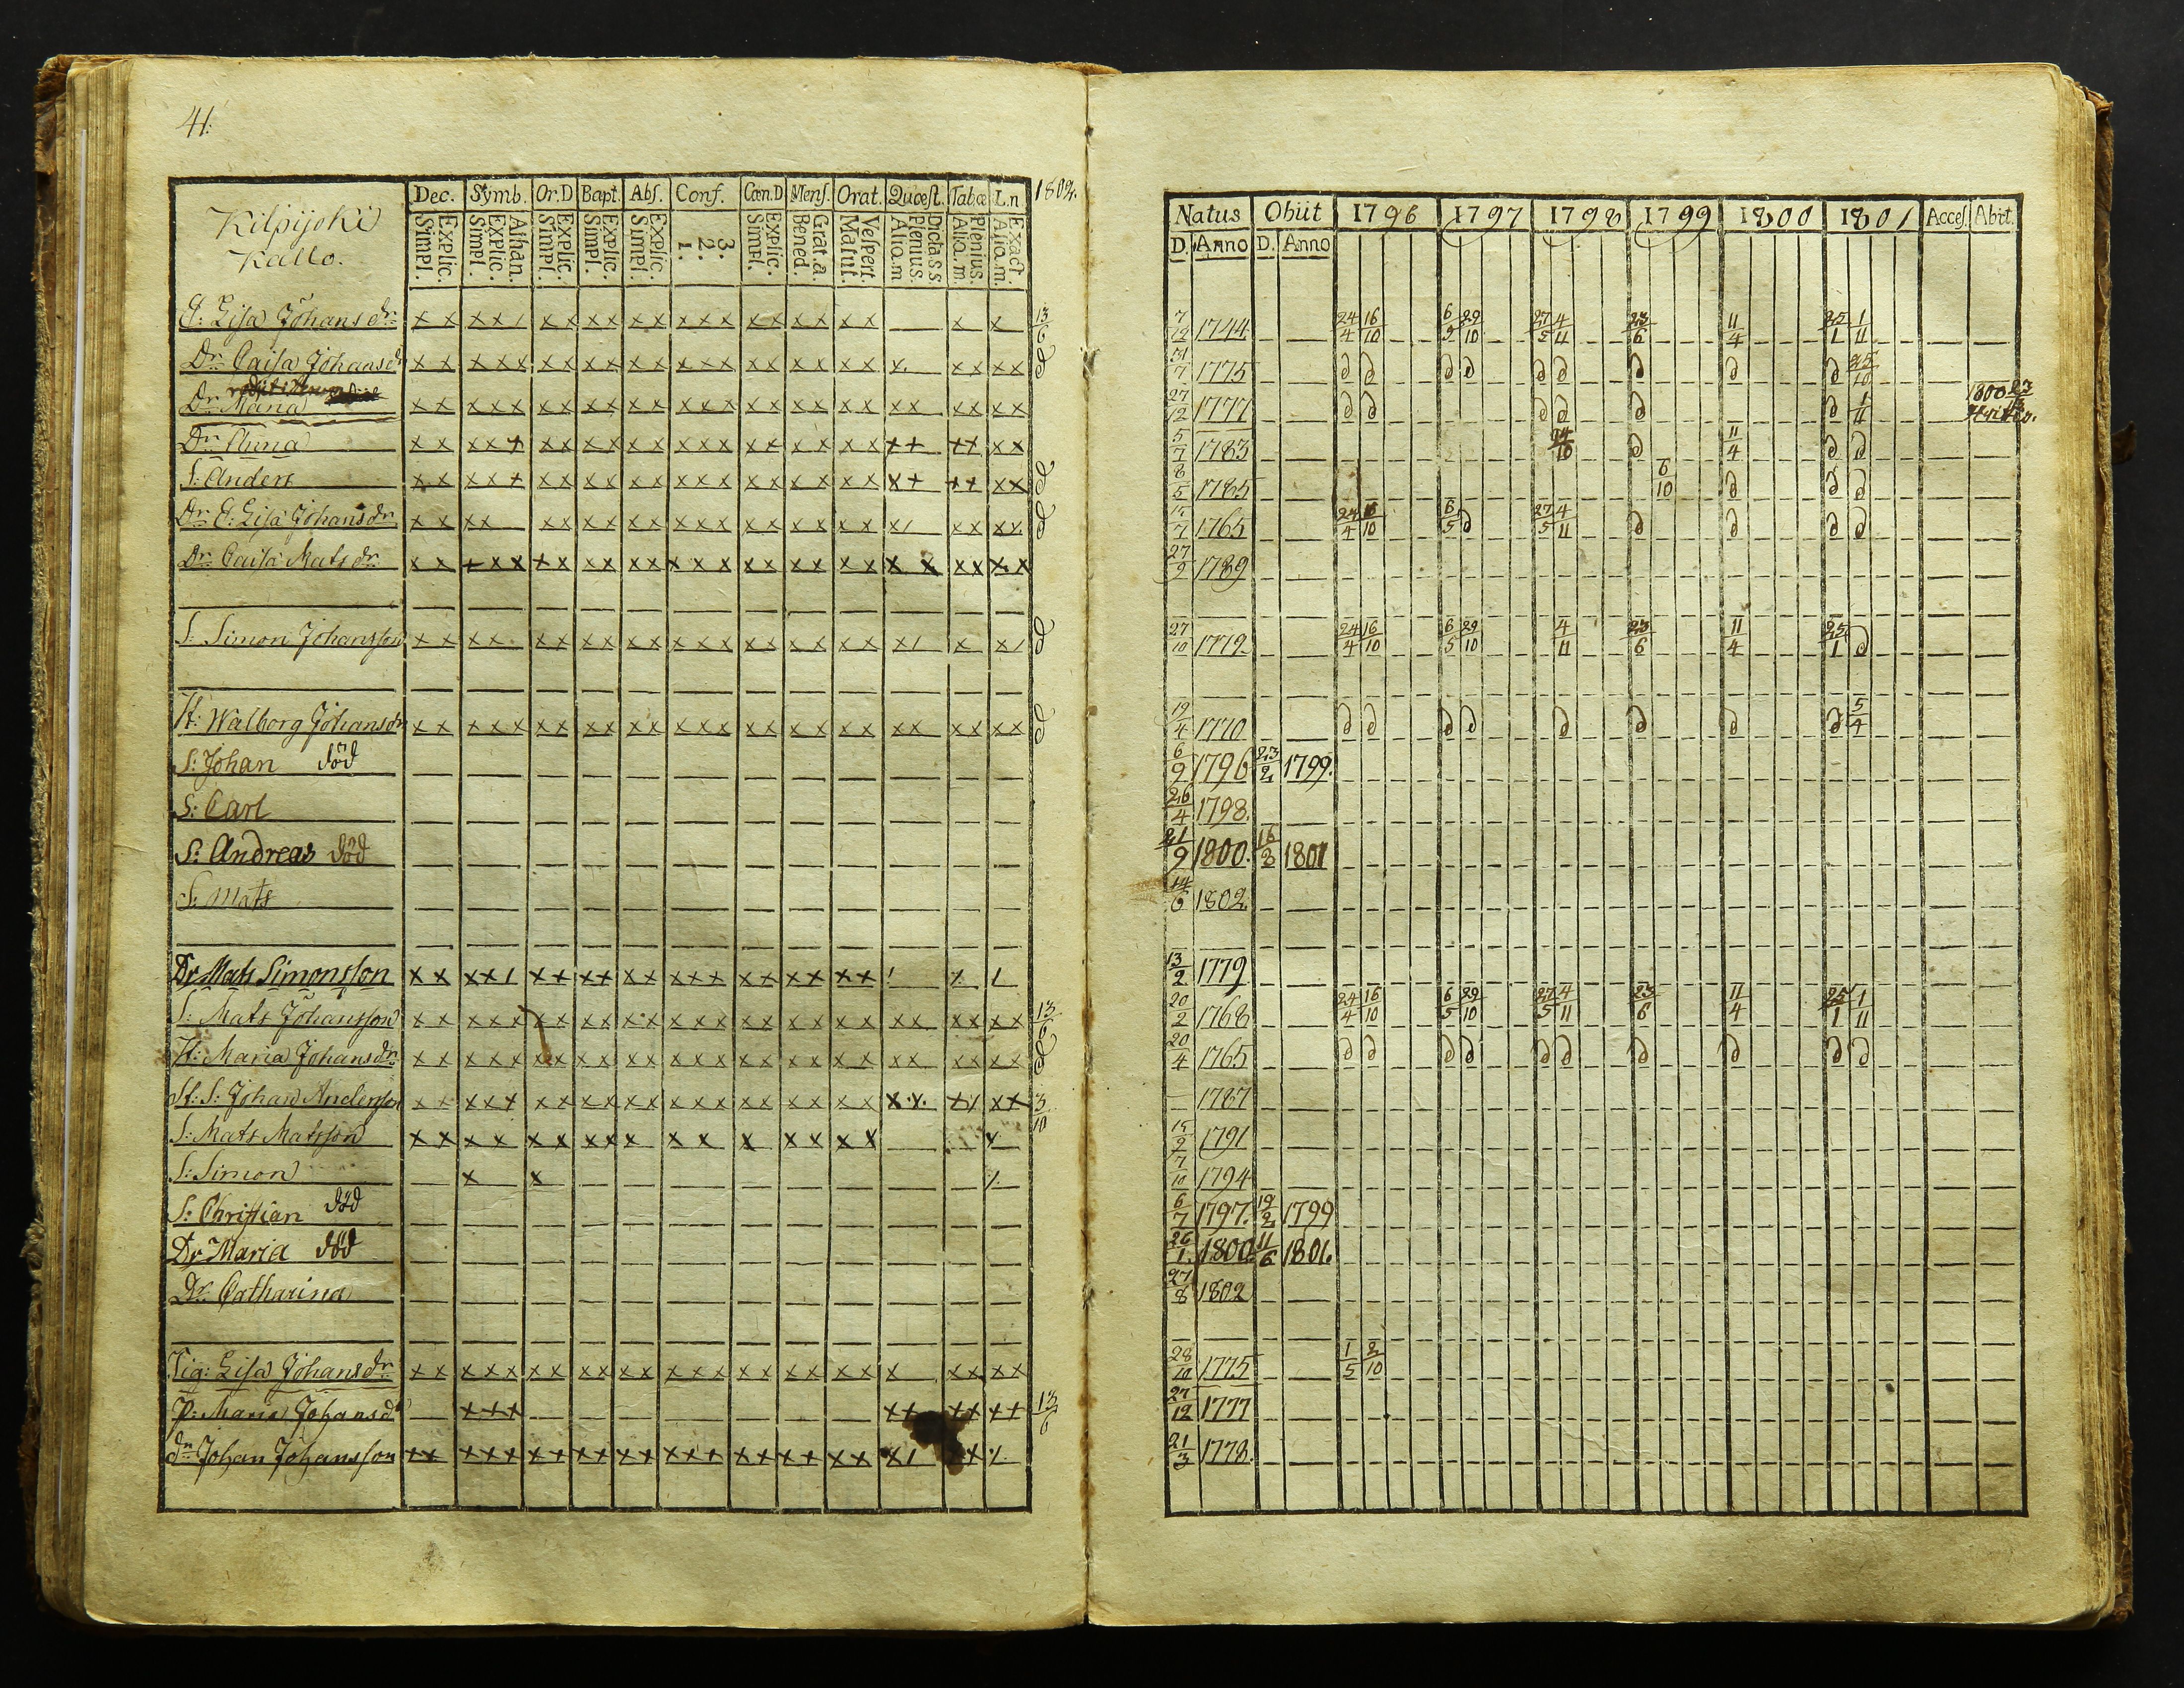 41:
Kilpijoki
Kallo.
Dec. Symb. Or.D Bapt. Abs. Conf. Cœn.D Mens. Orat. Quœst. Tabœ L.n 1802.
Explic. Simpl. Athan. Explic. Simpl. Explic. Simpl. Explic. Simpl. Explic. Simpl. 3. 2. 1. Explic. Simpl. Grat.a. Bened. Vespert. Matut. Dictass Plenius. Aliq.m Plenius. Aliq.m. Exact Aliq.m.
E: Lisa Johansdr x x x x / x x x x x x x x x x x x x x x x x 13/6
Dr Caisa Johansdr x x x x x x x x x x x x x x x x x x x x x. x x x x d
Dr Maria x x x x x x x x x x x x x x x x x x x x x x x x x x
Dr Anna x x x x + x x x x x x x x x x x x x x x + + + + x x
S: Anders x x x x + x x x x x x x x x x x x x x x x + + + x x d
Dr E: Lisa Johansdr x x x x x x x x x x x x x x x x x x x x / x x x x. d
Dr Caisa Mats dr x x x x x x x x x x x x x x x x x x x x x x x x x x
S: Simon Johansson x x x x x x x x x x x x x x x x x x x x / x x / d
H: Walborg Johansdr x x x x x x x x x x x x x x x x x x x x x x x x x x d
S: Johan död
S: Carl
S: Andreas död
S: Mats
Dr Mats Simonsson x x x x / x x x x x x x x x x x x x x x / x /
S: Mats Johansson x x x x x x x x x x x x x x x x x x x x x x x x x x 13/6
H: Maria Johansdr x x x x x x x x x x x x x x x x x x x x x x x x x x d
St: S: Johan Andersson x x x x x x x x x x x x x x x x x x x x x x. x / x x 3/10
S: Mats Matsson x x x x x x x x x x x x x x x x x
S: Simon x x /
S: Christian död
Dr Maria död
Dr Catharina
Tig: Lisa Johansdr x x x x x x x x x x x x x x x x x x x x x x x x x
P: Maria Johansdr x x x x x x x x x 13/6
dn Johan Johansson x x x x x x x x x x x x x x x x x x x x x / x x /
Natus Obiit 1796 1797 1798 1799 1800 1801 Acces. Abiit.
D. Anno D. Anno
7/12 1744 24/4 16/10 6/5 29/10 27/5 4/11 23/6 11/4 25/1 1/11
31/7 1775 d d d d d d d d d 25/10
27/12 1777 d d d d d d 1/11 1800 23/13
5/7 1783 24/10 d 11/4 d d
8/5 1785 6/10 d d d
15/7 1765 24/4 16/10 6/5 d 27/5 4/11 d d d d
27/9 1789
27/10 1772 24/4 16/10 6/5 29/10 4/11 23/6 11/4 25/1 d
19/4 1770 d d d d d d d d 5/4
6/9 1796 23/2 1799.
26/4 1798.
21/9 1800. 16/8 1801
14/6 1802.
13/2 1779
20/2 1768 24/4 16/10 6/5 29/10 27/5 4/11 23/6 11/4 25/1 1/11
20/4 1765 d d d d d d d d d d
1787
15/9 1791
7/10 1794
6/7 1797. 19/2 1799
26/1 1800 11/6 1801.
27/8 1802
28/10 1775 1/5 2/10
27/12 1777
21/3 1778.